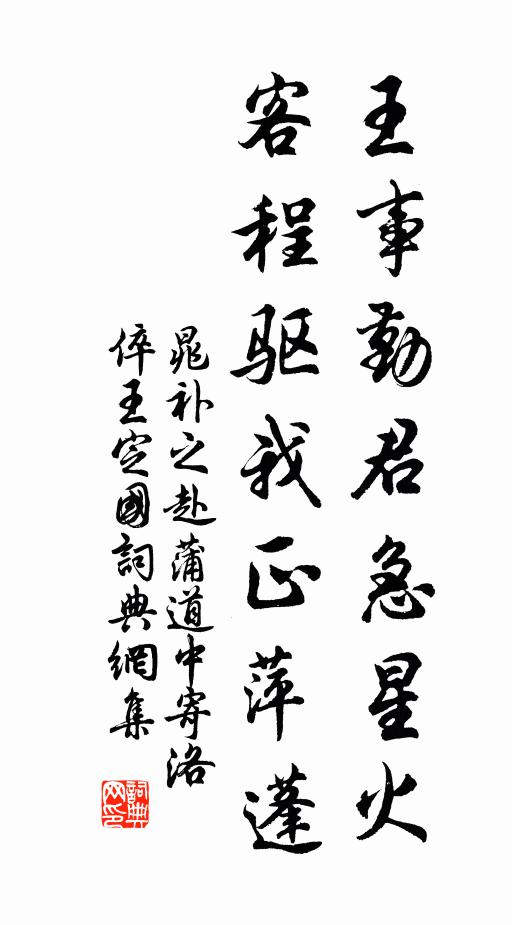 王事勤君急星火
客程驱我正萍蓬
晁补之赴蒲道中寄洛
倅王定國詞典網集
詞典网印